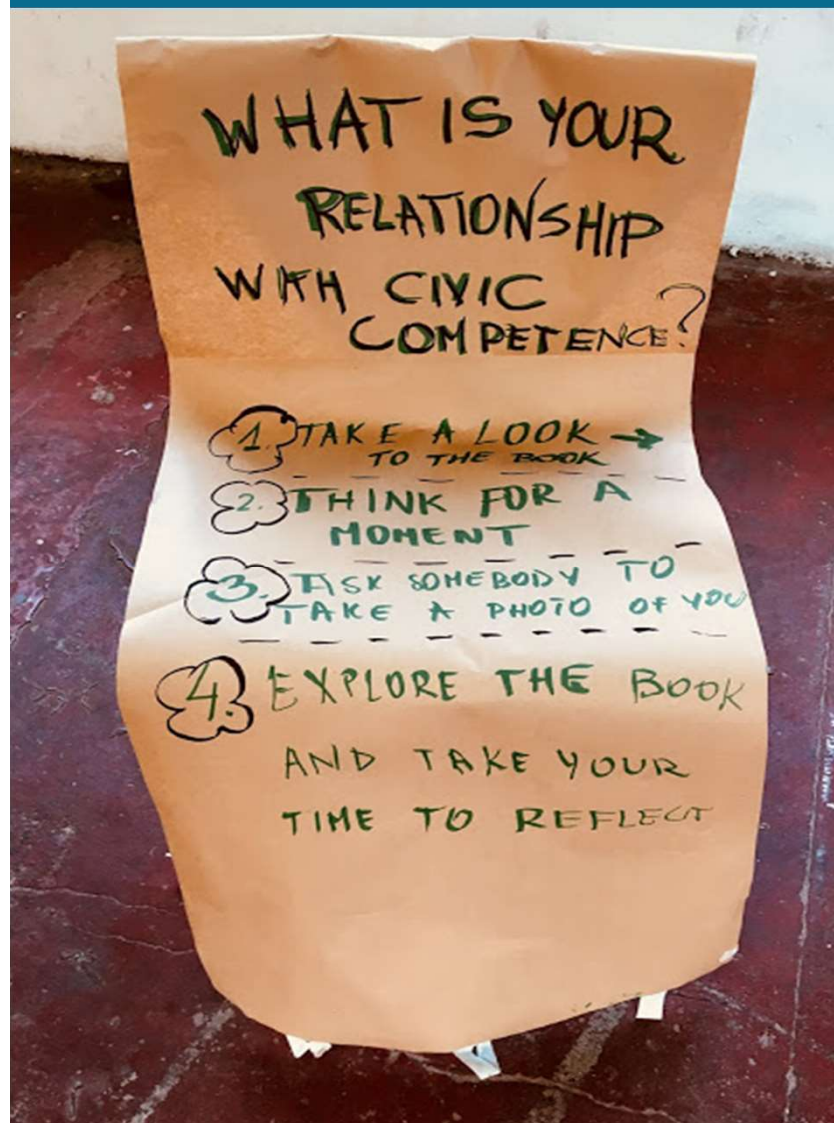 WHAT IS YOUR
RELATIONSHIP
WITH CIVIC
COMPETENCE?
1. TAKE A LOOK →
TO THE BOOK
2. THINK FOR A
MOMENT
3. ASK SOMEBODY TO
TAKE A PHOTO OF YOU
4. EXPLORE THE BOOK
AND TAKE YOUR
TIME TO REFLECT